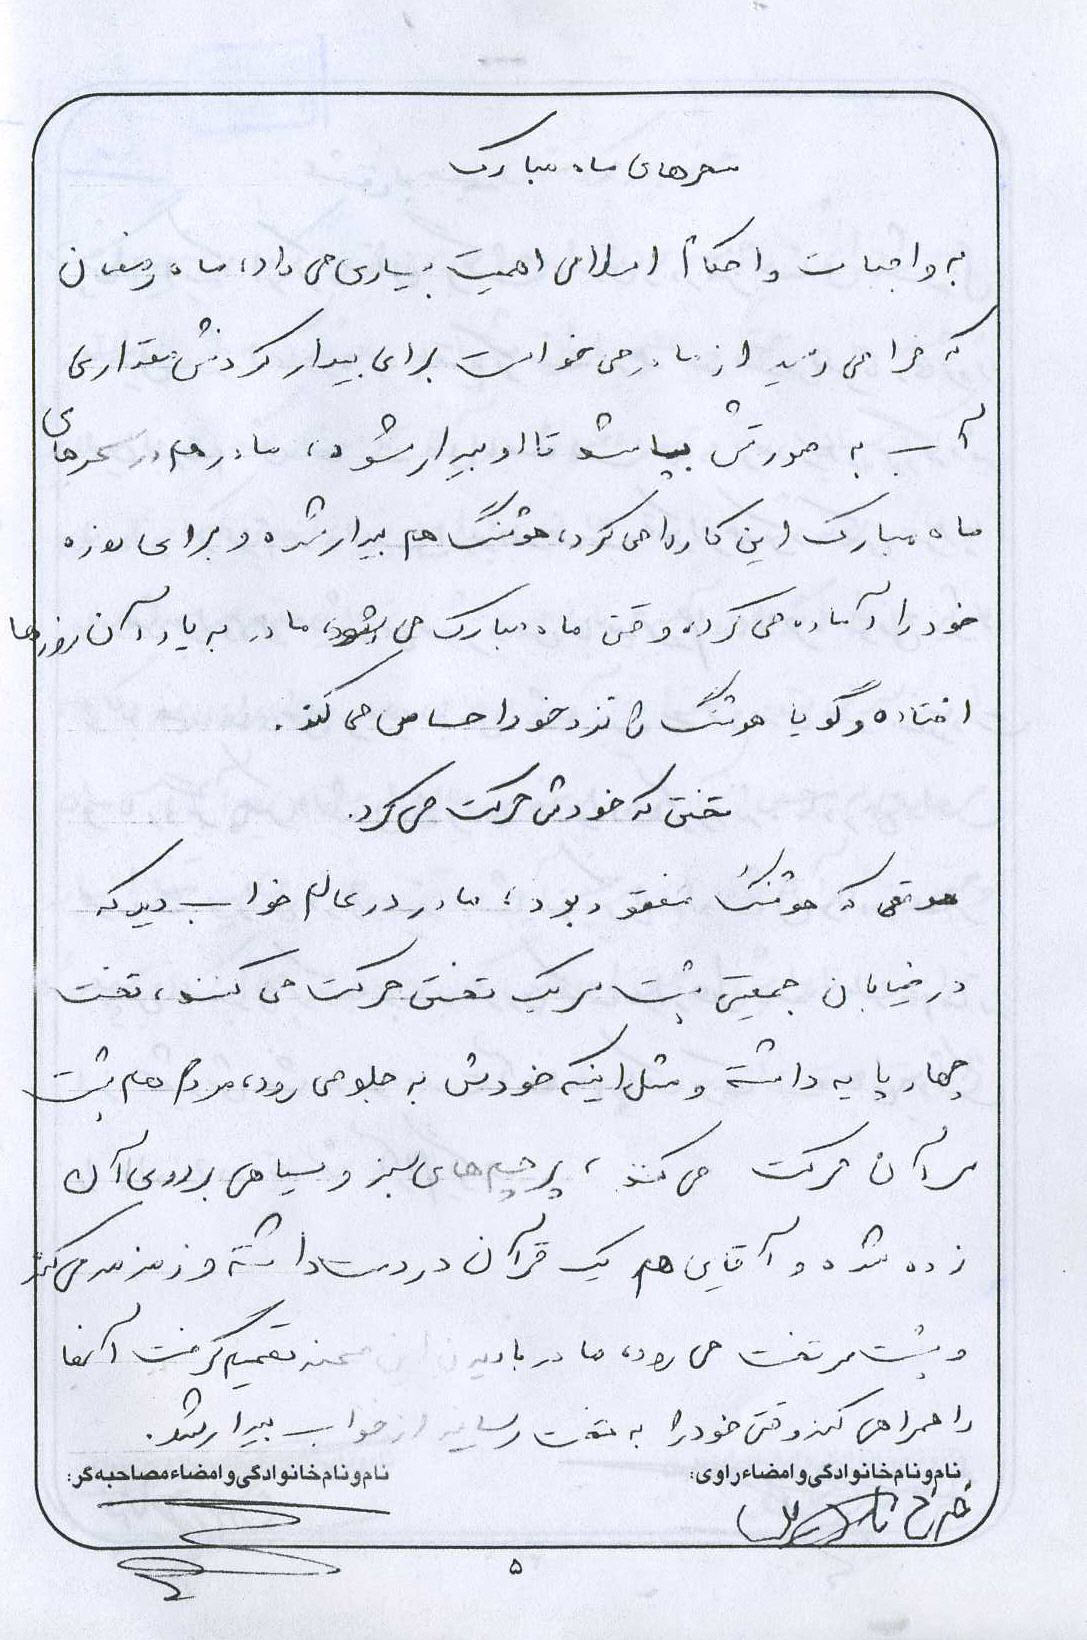 سحرهای ماه مبارک
به واجبات و احکام اسلامی اهمیت بسیاری می داد، ماه رمضان
که فرا می رسید از مادر می خواست برای بیدار کردنش مقداری
آب به صورتش بپاشد تا او بیدار شود، مادر هم در سحرهای
ماه مبارک این کار را می کرد، هوشنگ هم بیدار شده و برای روزه
خود را آماده می کرد، وقتی ماه مبارک می شود، مادر به یاد آن روزها
افتاده و گویا هوشنگ را نزد خود احساس می کند.
تختی که خودش حرکت می کرد.
موقعی که هوشنگ مفقود بود، مادر در عالم خواب دید که
در خیابان جمعیتی پشت سر یک تختی حرکت می کنند، تخت
چهار پایه داشته و مثل اینکه خودش به جلو می رود، مردم هم پشت
سر آن حرکت می کنند، پرچم های سبز و سیاهی بر روی آن
زده شده و آقایی هم یک قرآن در دست داشته و زمزمه می کند
و پشت سر تخت می رود، مادر با دیدن این صحنه تصمیم گرفت آنها
را همراهی کند وقتی خود را به تخت رسانید از خواب بیدار شد.
نام و نام خانوادگی و امضاء راوی:
نام و نام خانوادگی و امضاء مصاحبه گر:
۵